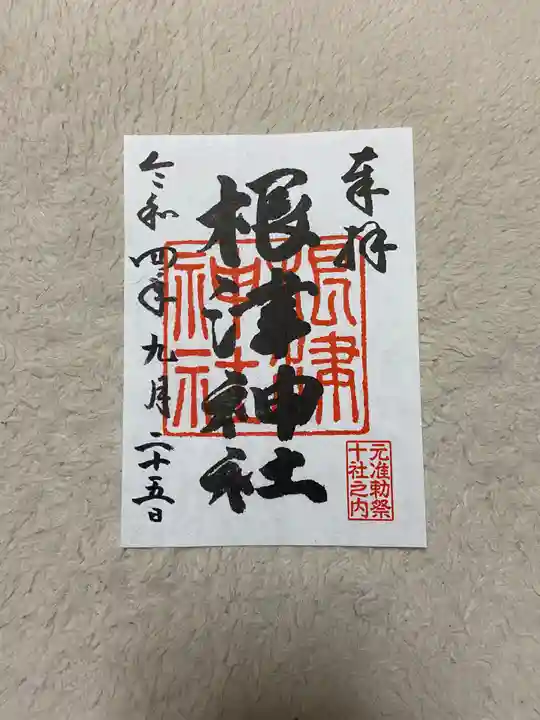 奉拝
根津神社
根津
神社
元准勅祭
十社之内
令和四年九月二十五日